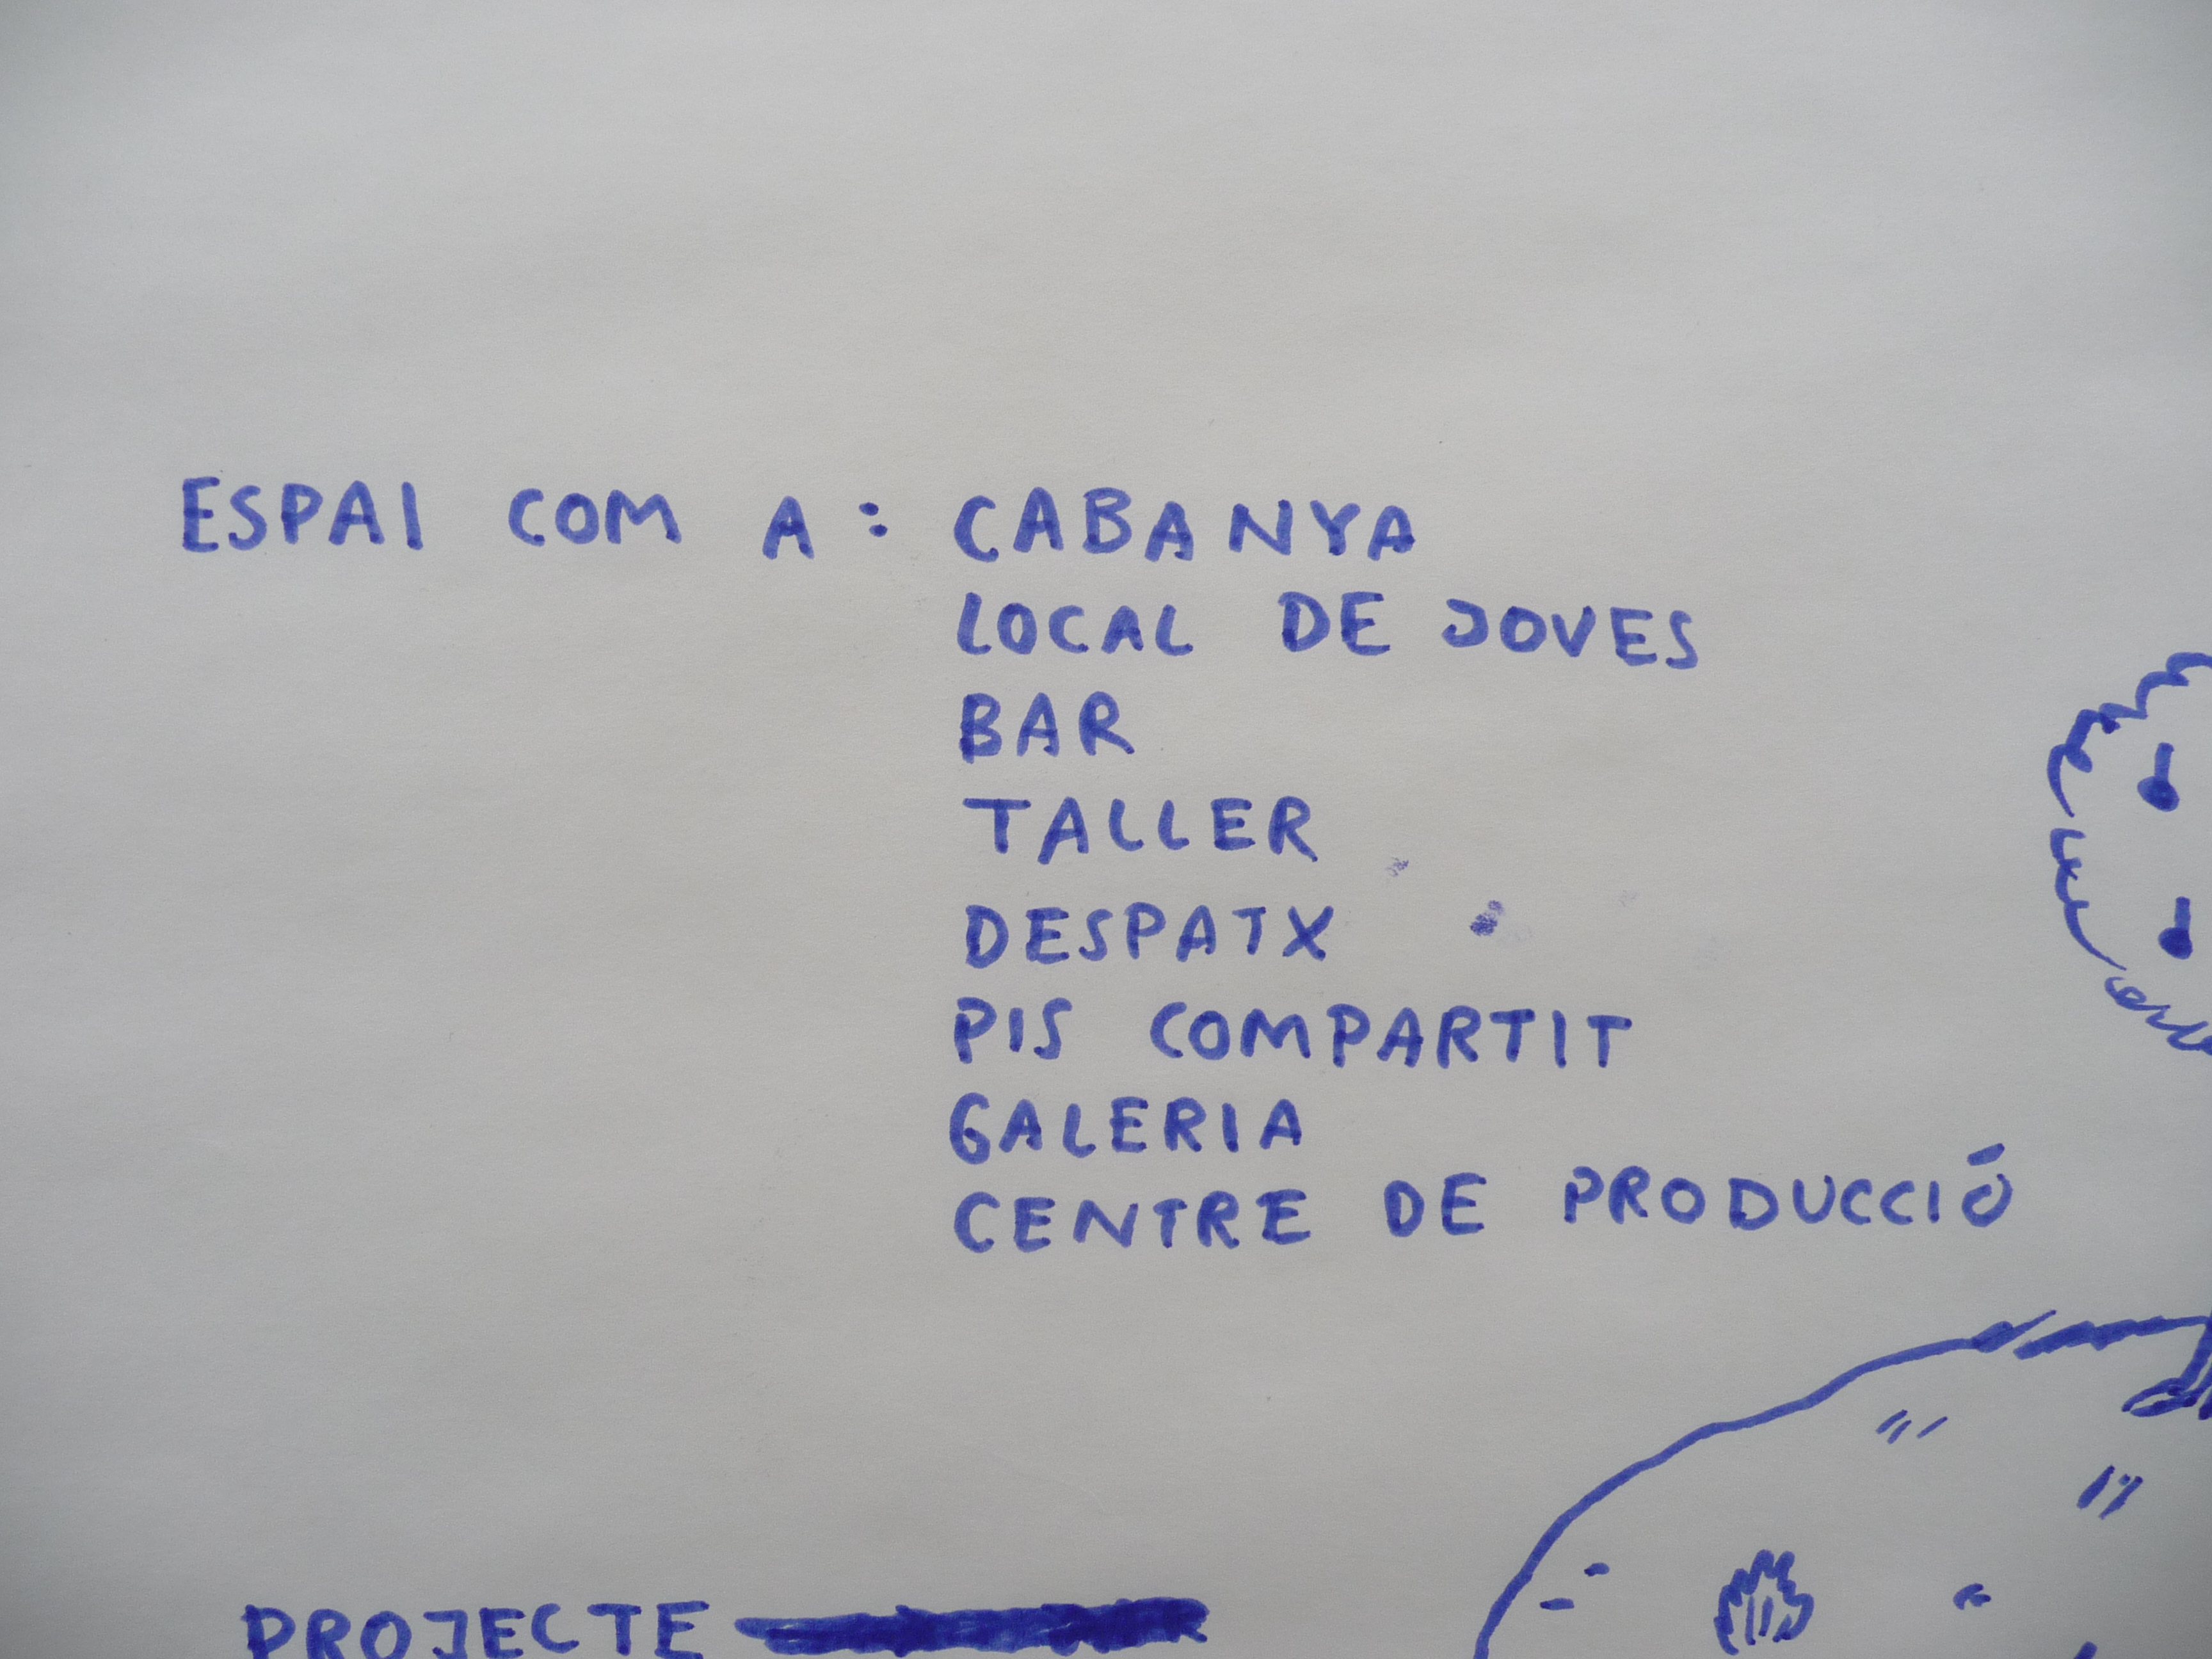 ESPAI COM A : CABANYA
LOCAL DE JOVES
BAR
TALLER
DESPATX
PIS COMPARTIT
GALERIA
CENTRE DE PRODUCCIÓ
PROJECTE